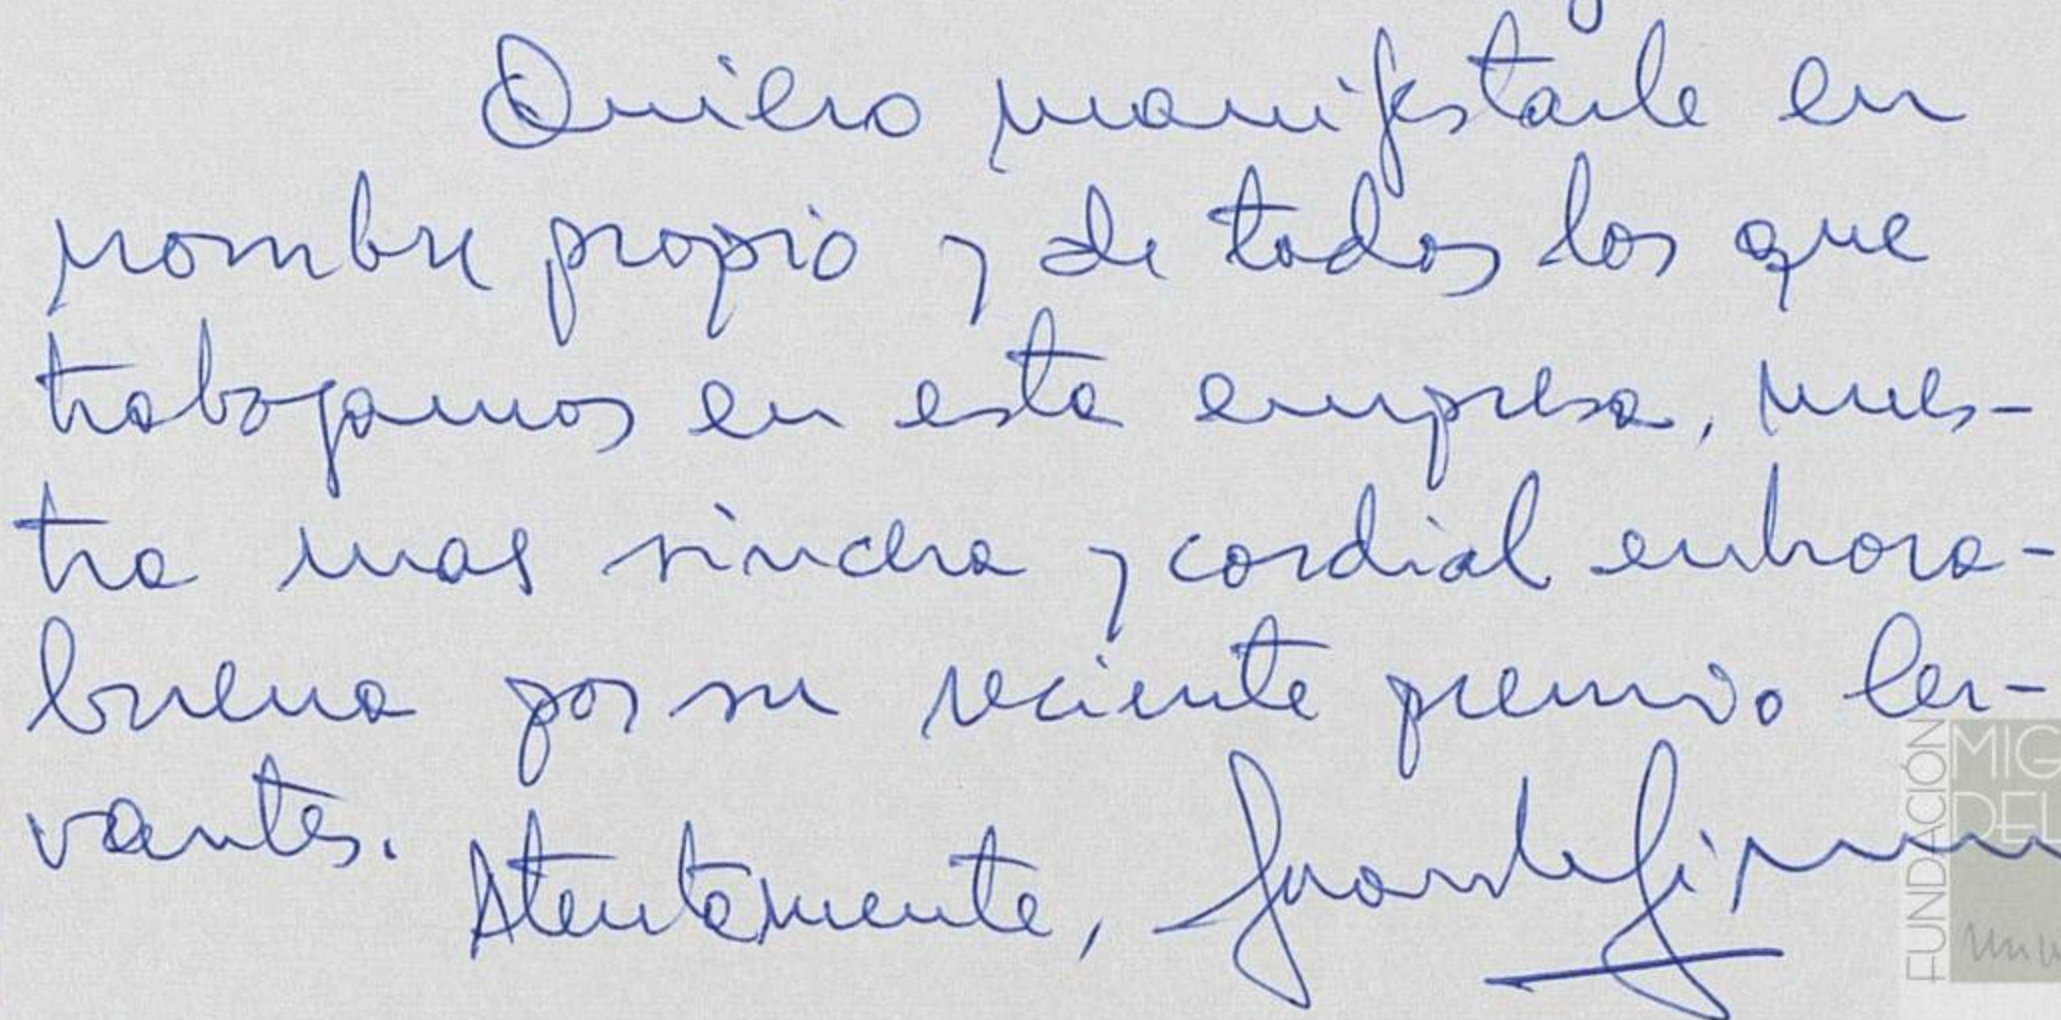 Quiero manifestarle en
nombre propio y de todos los que
trabajamos en esta empresa, nues-
tra mas sincera y cordial enhora-
buena por su reciente premio Cer-
vantes.
Atentamente,
FUNDACIÓN
MIG
DEL